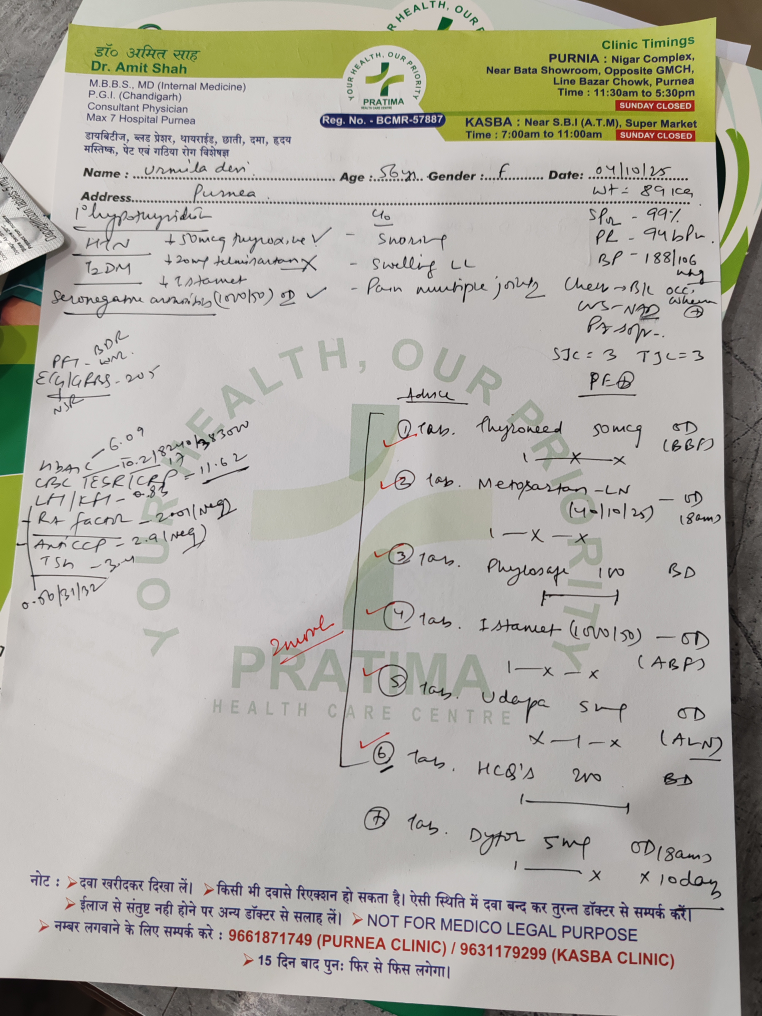 YOUR HEALTH, OUR PRIORITY
डॉ० अमित साह
Dr. Amit Shah
M.B.B.S., MD (Internal Medicine)
P.G.I. (Chandigarh)
Consultant Physician
Max 7 Hospital Purnea
डायबिटीज, ब्लड प्रेशर, थायराईड, छाती, दमा, हृदय
मस्तिष्क, पेट एवं गठिया रोग विशेषज्ञ
YOUR HEALTH, OUR PRIORITY
PRATIMA
HEALTH CARE CENTRE
Reg. No. - BCMR-57887
Clinic Timings
PURNIA : Nigar Complex,
Near Bata Showroom, Opposite GMCH,
Line Bazar Chowk, Purnea
Time : 11:30am to 5:30pm
SUNDAY CLOSED
KASBA : Near S.B.I (A.T.M), Super Market
Time : 7:00am to 11:00am SUNDAY CLOSED
Name : Urmila devi Age : 56yr Gender : F Date: 04/10/25
Address Purnea
Wt = 89 kg
1° hypothyroidism
HTN ↓ 50mcg thyroxine ✓
T2DM ↓ 20mg telmisartan X
↓ Istamet
Seronegative (1000/50) OD ✓
C/o
- Snoring
- Swelling LL
- Pain multiple joints
SPO2 - 99%
PR - 94 bpm
BP - 188/106
Chest → B/L occ.
CVS - NAD
P/A soft
SJC = 3 TJC = 3
PE⊕
PFT - BDR
ECG/GRBS - 205
NSR
HBA1C - 6.09
CBC 10.2/8240/3.83
ESR/CRP = 11.62
LFT/KFT - 0.83
RA factor - 2.01 (Neg)
Anti CCP - 2.9 (Neg)
TSH - 3.4
0.56/31/32
Advice
① Tab. Thyroneed 50mcg OD
(BBF)
1 — X — X
② Tab. Metosartan-LN — OD
(40/10/25) (8am)
1 — X — X
③ Tab. Phylosafe 100 BD
④ Tab. Istamet (1000/50) — OD
(ABF)
1 — X — X
⑤ Tab. Udapa 5mg OD
X — 1 — X (ALN)
⑥ Tab. HCQ'S 200 BD
⑦ Tab. Dytor 5mg OD (8am)
1 — X X 10 days
YOUR HEALTH, OUR PRIORITY
PRATIMA
HEALTH CARE CENTRE
नोट : ➤ दवा खरीदकर दिखा लें। ➤ किसी भी दवासे रिएक्शन हो सकता है। ऐसी स्थिति में दवा बन्द कर तुरन्त डॉक्टर से सम्पर्क करें।
➤ ईलाज से संतुष्ट नही होने पर अन्य डॉक्टर से सलाह लें। ➤ NOT FOR MEDICO LEGAL PURPOSE
➤ नम्बर लगवाने के लिए सम्पर्क करे : 9661871749 (PURNEA CLINIC) / 9631179299 (KASBA CLINIC)
➤ 15 दिन बाद पुन: फिर से फिस लगेगा।